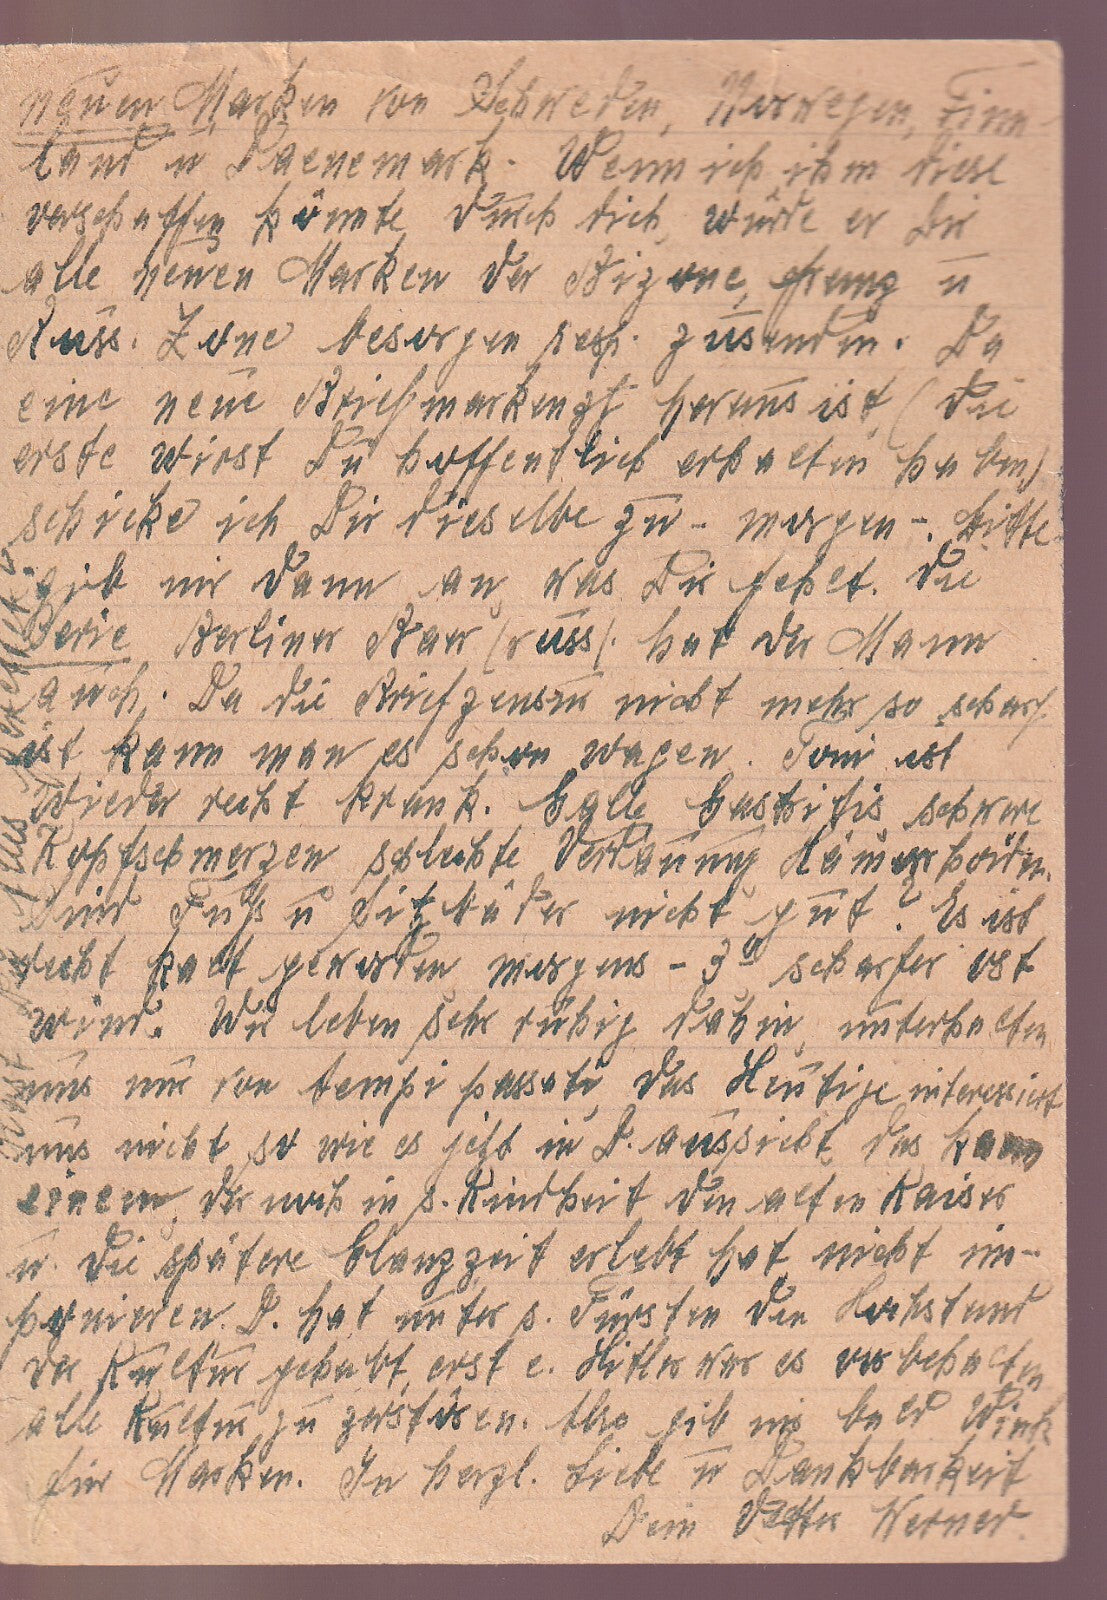 neuen Marken von Schweden, Norwegen, Finn-
land u Daenemark. Wenn ich ihm diese
verschaffen könnte durch dich, würde er Dir
alle neuen Marken der Bizone, franz u
Russ. Zone besorgen resp. zusenden. Da
eine neue Briefmarkenztg heraus ist, (die
erste wirst Du hoffentlich erhalten haben)
schicke ich Dir dieselbe zu - morgen -. Bitte
gib mir dann an, was Dir fehlt. Die
Serie Berliner Baer (russ). hat der Mann
auch. Da die Briefzensur nicht mehr so scharf
ist kann man es schon wagen. Toni ist
wieder recht krank. Galle Gastritis schwere
Kopfschmerzen schlechte Verdauung Hämorrhoiden.
Sind Fuß u Sitzbäder nicht gut? Es ist
recht kalt geworden, morgens - 3° scharfer Ost
wind. Wir leben sehr ruhig dahin, unterhalten
uns nur von tempi passati, das Heutige interessiert
uns nicht so wie es jetzt in D. aussieht, das kann
einem, der noch in s. Kindheit den alten Kaiser
u. die spätere Glanzzeit erlebt hat, nicht im-
ponieren. D. hat unter s. Fürsten den Hochstand
der Kultur gehabt, erst e. Hitler war es vorbehalten
alle Kultur zu zerstören. Also gib mir bald Wink
für Marken. In herzl. Liebe u Dankbarkeit
Dein Vetter Werner.